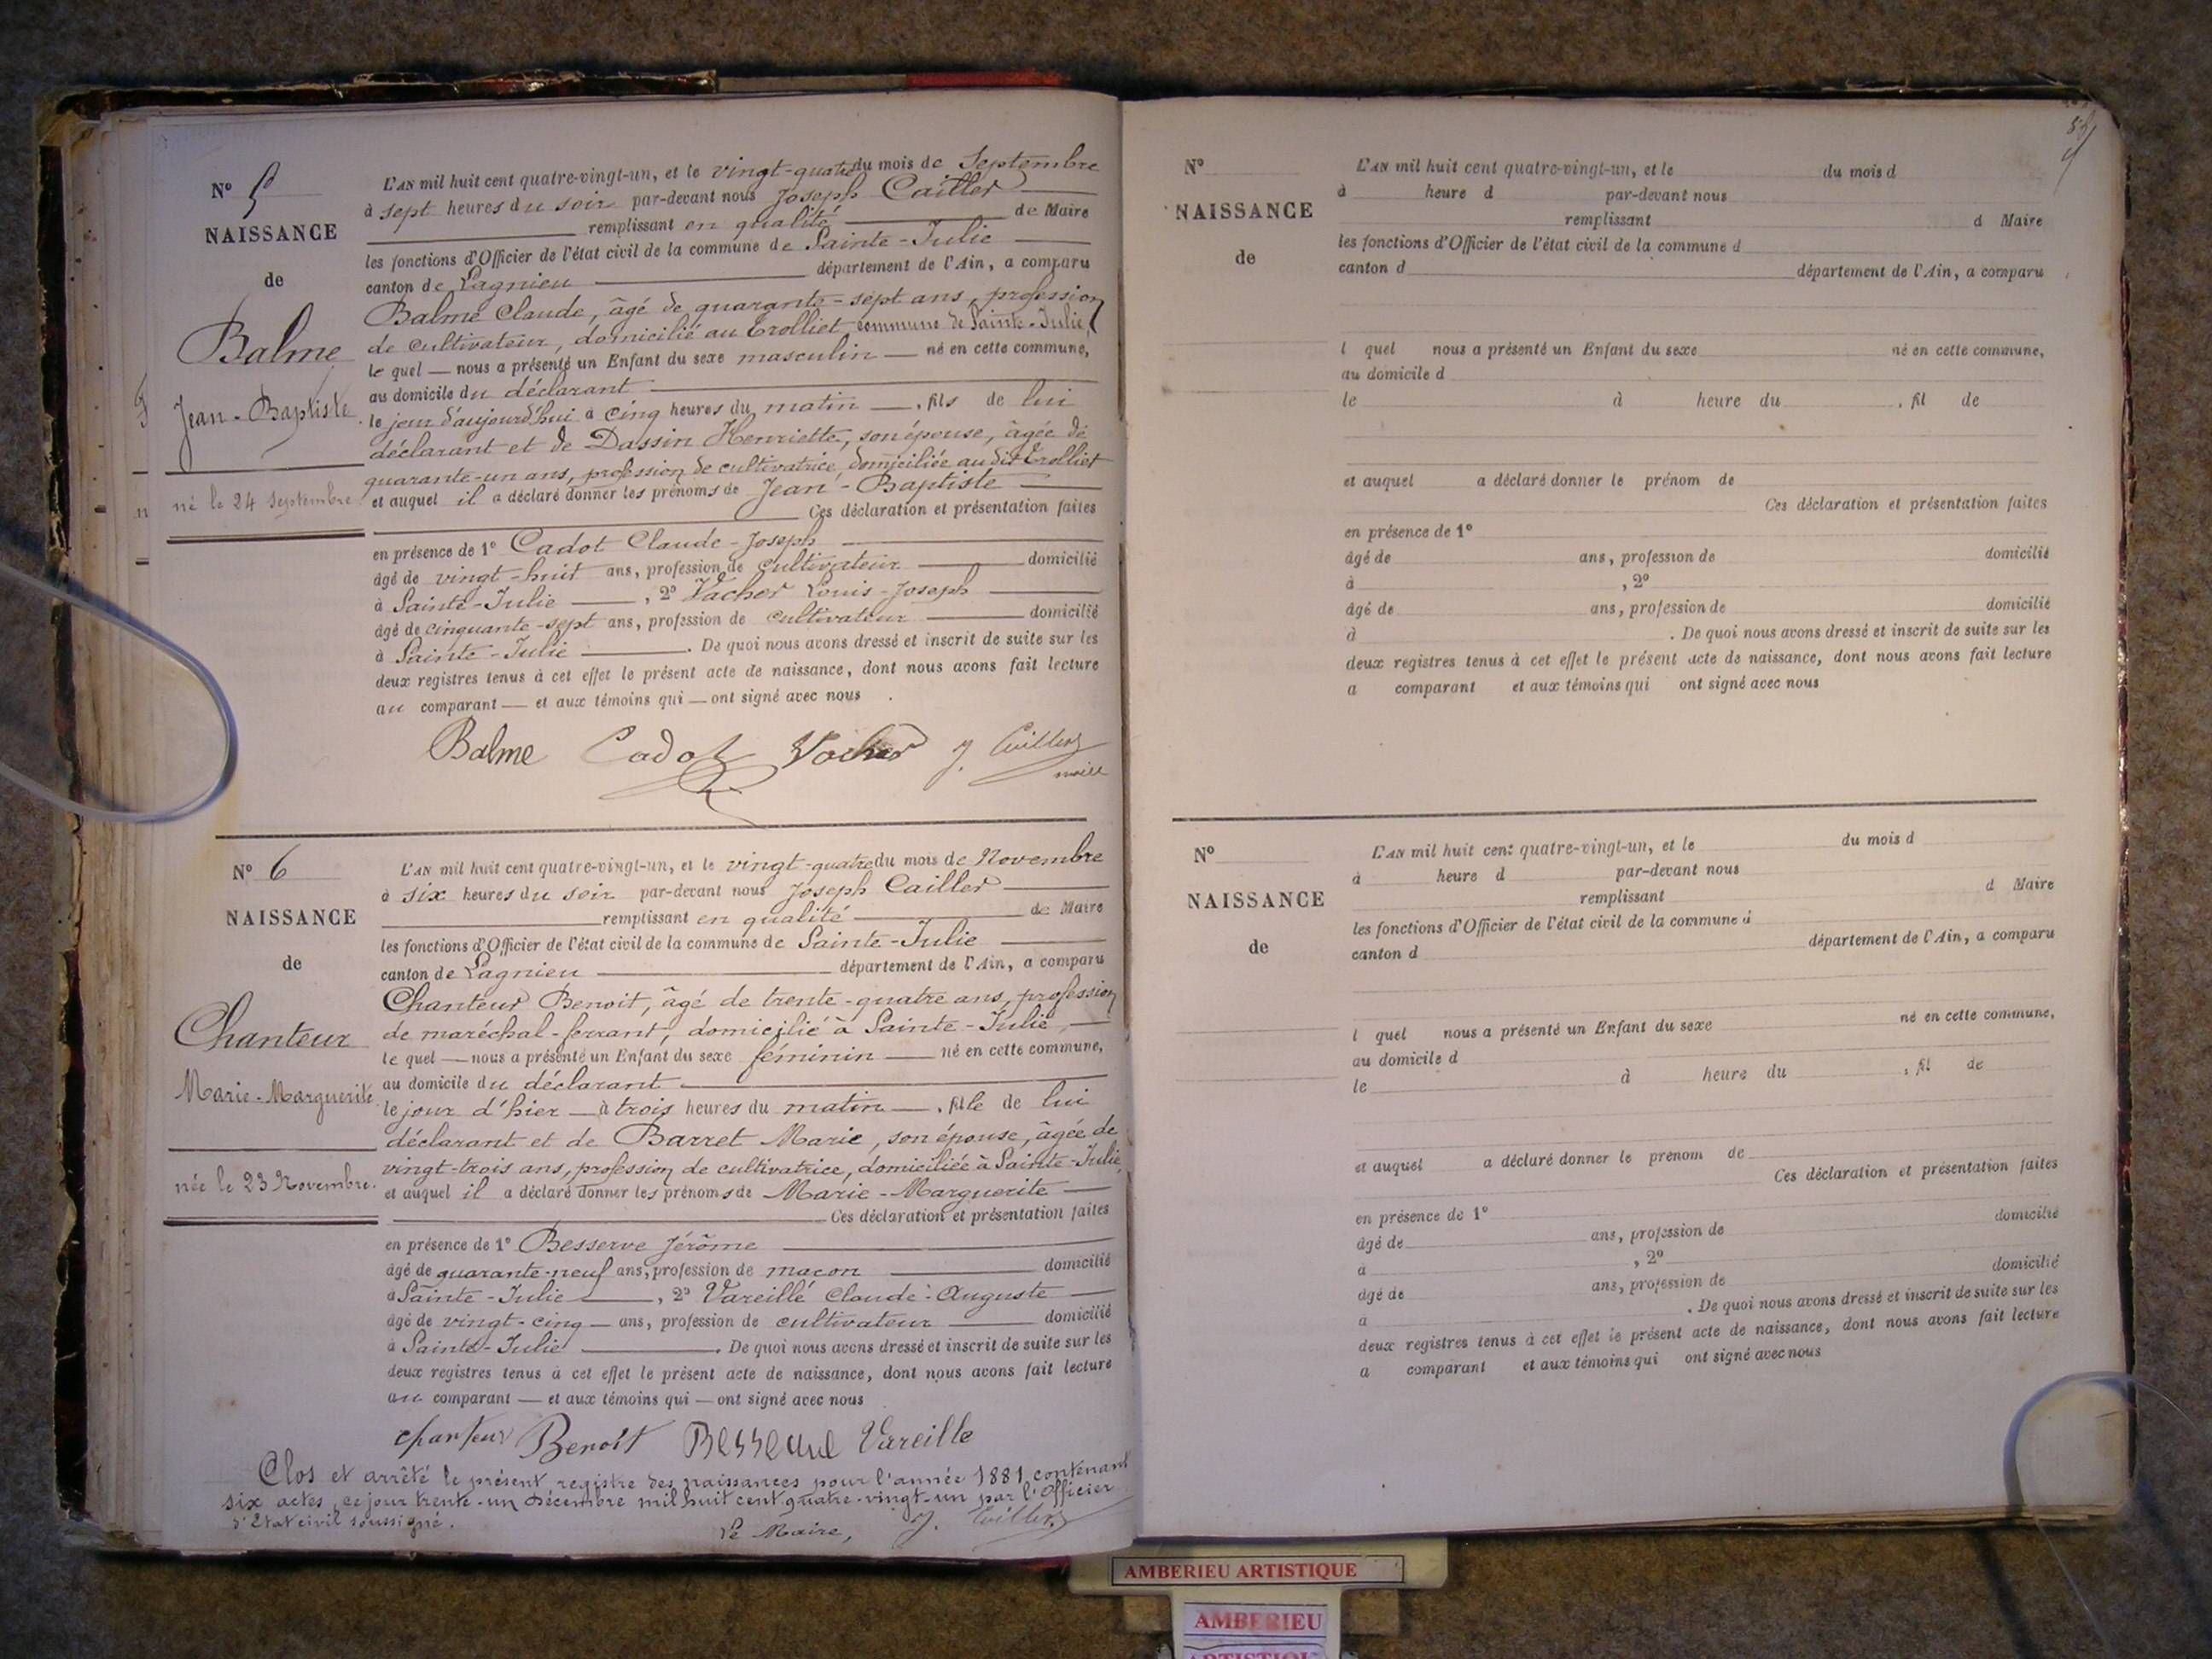 N° 5
NAISSANCE
de
Balme
Jean-Baptiste
né le 24 Septembre
L'AN mil huit cent quatre-vingt-un, et le vingt-quatre du mois de Septembre
à sept heures du soir par-devant nous Joseph Cailler
remplissant en qualité de Maire
les fonctions d'Officier de l'état civil de la commune de Sainte-Julie
canton de Lagnieu département de l'Ain, a comparu
Balme Claude, âgé de quarante-sept ans, profession
de cultivateur, domicilié au Trolliet commune de Sainte-Julie,
le quel nous a présenté un Enfant du sexe masculin né en cette commune,
au domicile du déclarant
le jour d'aujourd'hui à cinq heures du matin, fils de lui
déclarant et de Dassin Henriette, son épouse, âgée de
quarante-un ans, profession de cultivatrice, domiciliée au dit Trolliet
et auquel il a déclaré donner les prénoms de Jean-Baptiste
Ces déclaration et présentation faites
en présence de 1° Cadot Claude-Joseph
âgé de vingt-huit ans, profession de cultivateur domicilié
à Sainte-Julie, 2° Vacher Louis-Joseph
âgé de cinquante-sept ans, profession de cultivateur domicilié
à Sainte-Julie. De quoi nous avons dressé et inscrit de suite sur les
deux registres tenus à cet effet le présent acte de naissance, dont nous avons fait lecture
au comparant et aux témoins qui ont signé avec nous.
Balme Cadot Vacher J. Cailler
maire
N° 6
NAISSANCE
de
Chanteur
Marie-Marguerite
née le 23 Novembre.
L'AN mil huit cent quatre-vingt-un, et le vingt-quatre du mois de Novembre
à six heures du soir par-devant nous Joseph Cailler
remplissant en qualité de Maire
les fonctions d'Officier de l'état civil de la commune de Sainte-Julie
canton de Lagnieu département de l'Ain, a comparu
Chanteur Benoit, âgé de trente-quatre ans, profession
de maréchal-ferrant, domicilié à Sainte-Julie,
le quel nous a présenté un Enfant du sexe féminin né en cette commune,
au domicile du déclarant
le jour d'hier à trois heures du matin, fille de lui
déclarant et de Barret Marie, son épouse, âgée de
vingt-trois ans, profession de cultivatrice, domiciliée à Sainte-Julie
et auquel il a déclaré donner les prénoms de Marie-Marguerite
Ces déclaration et présentation faites
en présence de 1° Besserve Jérôme
âgé de quarante-neuf ans, profession de maçon domicilié
à Sainte-Julie, 2° Vareille Claude-Auguste
âgé de vingt-cinq ans, profession de cultivateur domicilié
à Sainte-Julie. De quoi nous avons dressé et inscrit de suite sur les
deux registres tenus à cet effet le présent acte de naissance, dont nous avons fait lecture
au comparant et aux témoins qui ont signé avec nous
chanteur Benoit Besserve Vareille
Clos et arrêté le présent registre des naissances pour l'année 1881, contenant
six actes, ce jour trente-un décembre mil huit cent quatre-vingt-un par l'Officier
d'Etat civil soussigné.
Le Maire, J. Cailler
N°
NAISSANCE
de
L'AN mil huit cent quatre-vingt-un, et le du mois d
à heure d par-devant nous
remplissant d Maire
les fonctions d'Officier de l'état civil de la commune d
canton d département de l'Ain, a comparu
l quel nous a présenté un Enfant du sexe né en cette commune,
au domicile d
le à heure du , fil de
et auquel a déclaré donner le prénom de
Ces déclaration et présentation faites
en présence de 1°
âgé de ans, profession de domicilié
à , 2°
âgé de ans, profession de domicilié
à . De quoi nous avons dressé et inscrit de suite sur les
deux registres tenus à cet effet le présent acte de naissance, dont nous avons fait lecture
a comparant et aux témoins qui ont signé avec nous
N°
NAISSANCE
de
L'AN mil huit cent quatre-vingt-un, et le du mois d
à heure d par-devant nous
remplissant d Maire
les fonctions d'Officier de l'état civil de la commune d
canton d département de l'Ain, a comparu
l quel nous a présenté un Enfant du sexe né en cette commune,
au domicile d
le à heure du , fil de
et auquel a déclaré donner le prénom de
Ces déclaration et présentation faites
en présence de 1°
âgé de ans, profession de domicilié
à , 2°
âgé de ans, profession de domicilié
à . De quoi nous avons dressé et inscrit de suite sur les
deux registres tenus à cet effet le présent acte de naissance, dont nous avons fait lecture
a comparant et aux témoins qui ont signé avec nous
AMBERIEU ARTISTIQUE
AMBERIEU
ARTISTIQU